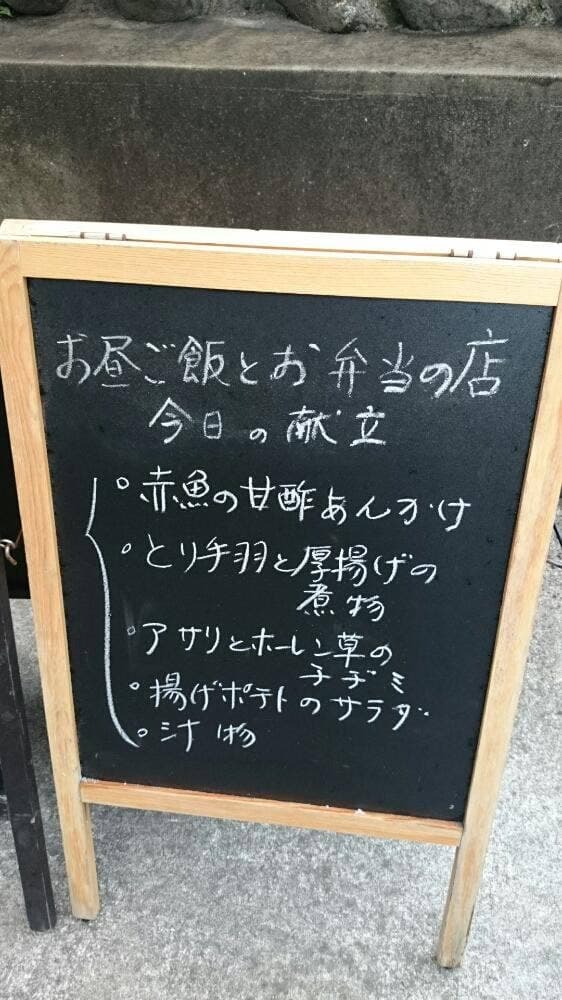 お昼ご飯とお弁当の店
今日の献立
赤魚の甘酢あんかけ
とり手羽と厚揚げの
煮物
アサリとホーレン草の
チヂミ
揚げポテトのサラダ
汁物